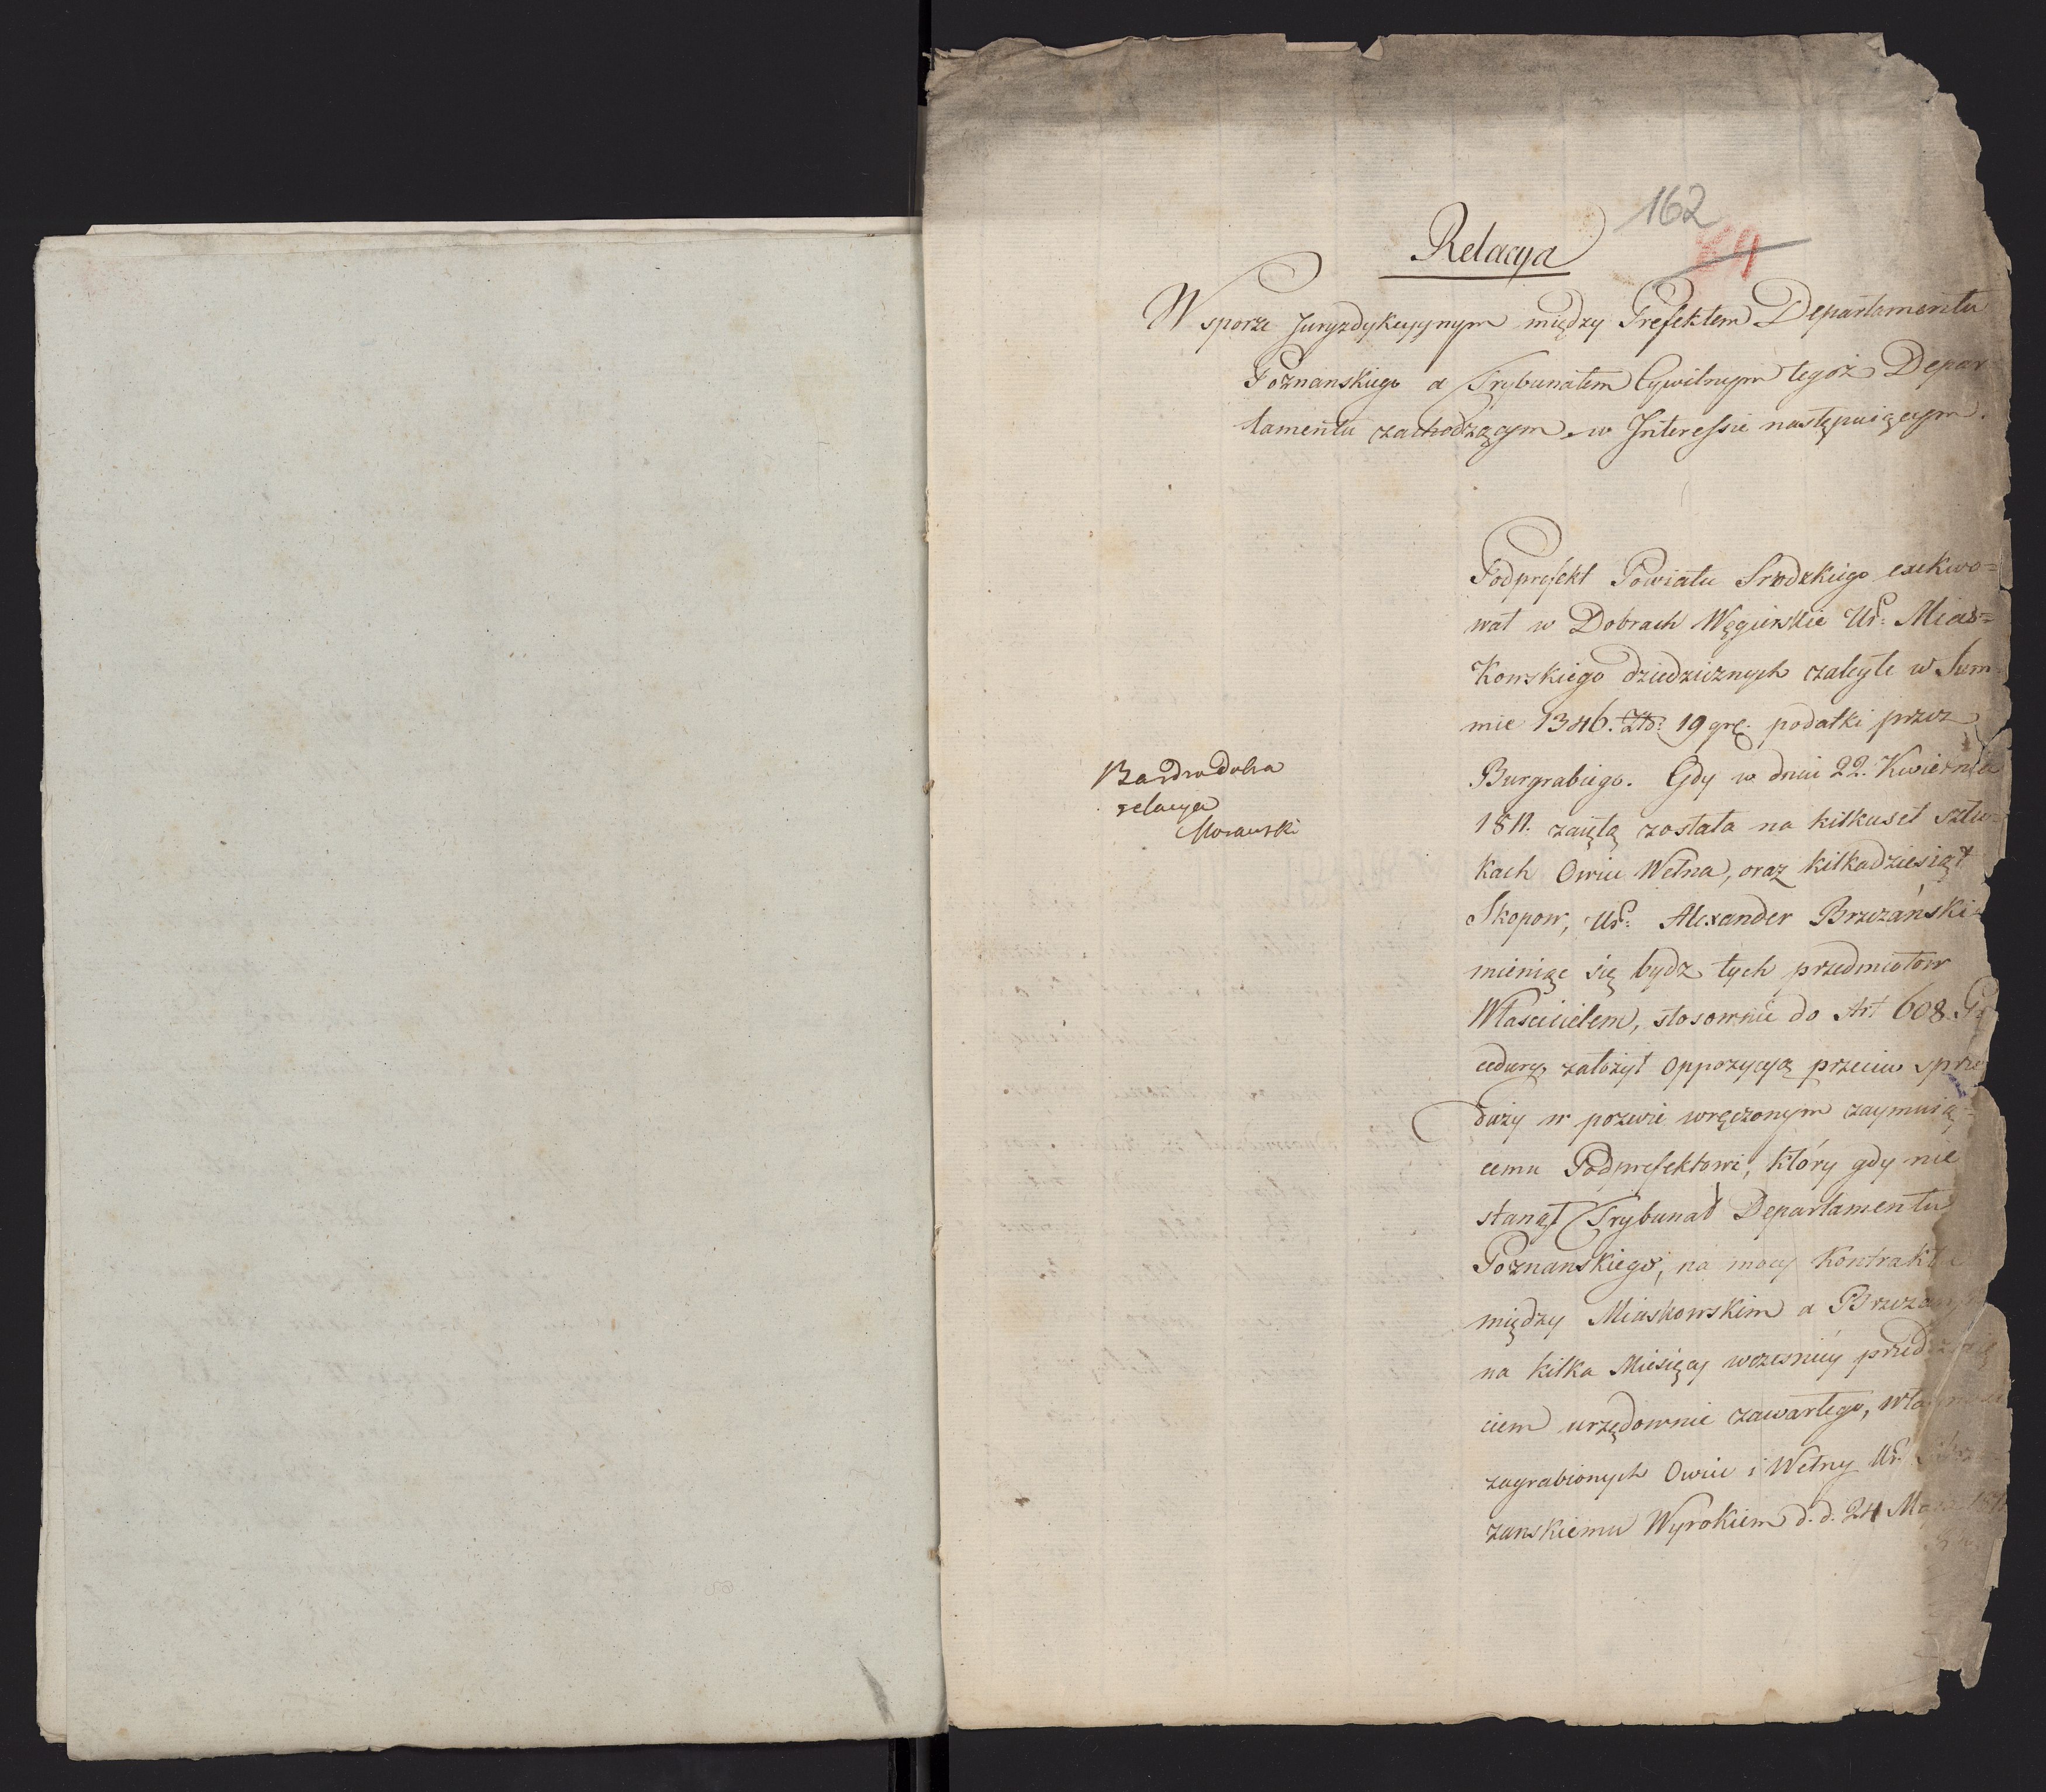 162
Relacya
W sporze Juryzdykcyjnym między Prefektem Departamentu
Poznanskiego a Trybunałem Cywilnym tegoż Depar
tamentu zachodzącym w Interessie następuiącym.
Podprefekt Powiatu Srodzkiego exekwo=
wał w Dobrach Węgierskie Ur: Mias=
Konskiego dziedzicznych zaległe w Sum
mie 1346. Zło: 19 gr. podatki przez
Burgrabiego. Gdy w dniu 22. Kwietnia
1811. zaiętą została na kilkuset sztu
kach Owiec Wełna, oraz kilkadziesiąt
Skopow, Ur: Alexander Brzezański
mieniąc się bydz tych przedmiotow
Właścicielem, stosownie do Art 608. Pro
cedury, założył oppozycyą przeciw sprze
daży w pozwie wręczonym zaymuią=
cemu Podprefektowi, który gdy nie
stanął Trybunał Departamentu
Poznanskiego, na mocy Kontraktu
między Miaskowskim a Brzezańskim
na kilka Miesięcy wcześniey przed zaię
ciem urzędownie zawartego, własność
zagrabionych Owiec i Wełny Ur. Brze
zanskiemu Wyrokiem d. d. 24 Maja 1811
Bardzo dobra
relacya
Morawski